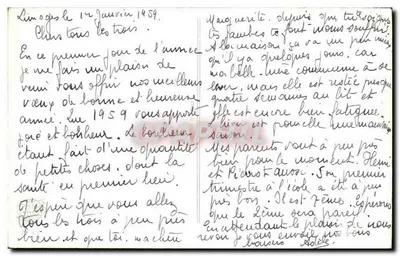 Limoges le 1er Janvier 1959.
Chers tous les trois.
En ce premier jour de l'année
je me fais un plaisir de
venir vous offrir nos meilleurs
vœux de bonne et heureuse
année. Que 1959 vous apporte
joie et bonheur. Le bonheur
étant fait d'une quantité
de petites choses. dont la
santé en premier lieu.
J'espère que vous allez
tous les trois à peu près
bien. et que toi. ma chère
Marguerite. depuis que tu
tes jambes te font moins souffrir
A la maison, ça va un peu mieux
qu'il y a quelques jours, car
Mémé commence à se
lever, mais elle est restée presque
quatre semaines au lit et
elle est encore bien fatiguée.
L'hiver est pour elle une mauvaise
saison.
Mes parents vont à peu près
bien pour le moment. Henri
et Pierrot aussi. Son premier
trimestre à l'école a été à peu
près bon. Il est 7ème. Espérons
que le 2ème sera pareil.
En attendant le plaisir de vous
revoir je vous envoie nos bons
baisers Adèle.